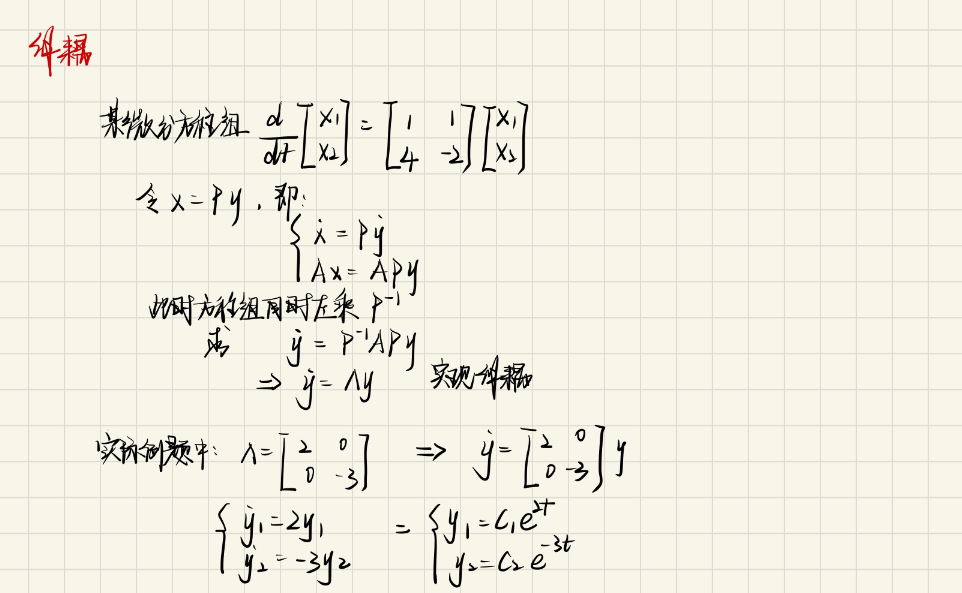 解耦
某微分方程组 d/dt [x₁; x₂] = [1 1; 4 -2] [x₁; x₂]
令 x = Py , 即:
{ ẋ = Pẏ
Ax = APy
此时方程组同时左乘 P⁻¹
求 ẏ = P⁻¹APy
⇒ ẏ = Λy 实现解耦
实际例题中: Λ = [2 0; 0 -3] ⇒ ẏ = [2 0; 0 -3] y
{ ẏ₁ = 2y₁ = { y₁ = C₁e^{2t}
ẏ₂ = -3y₂ y₂ = C₂e^{-3t}